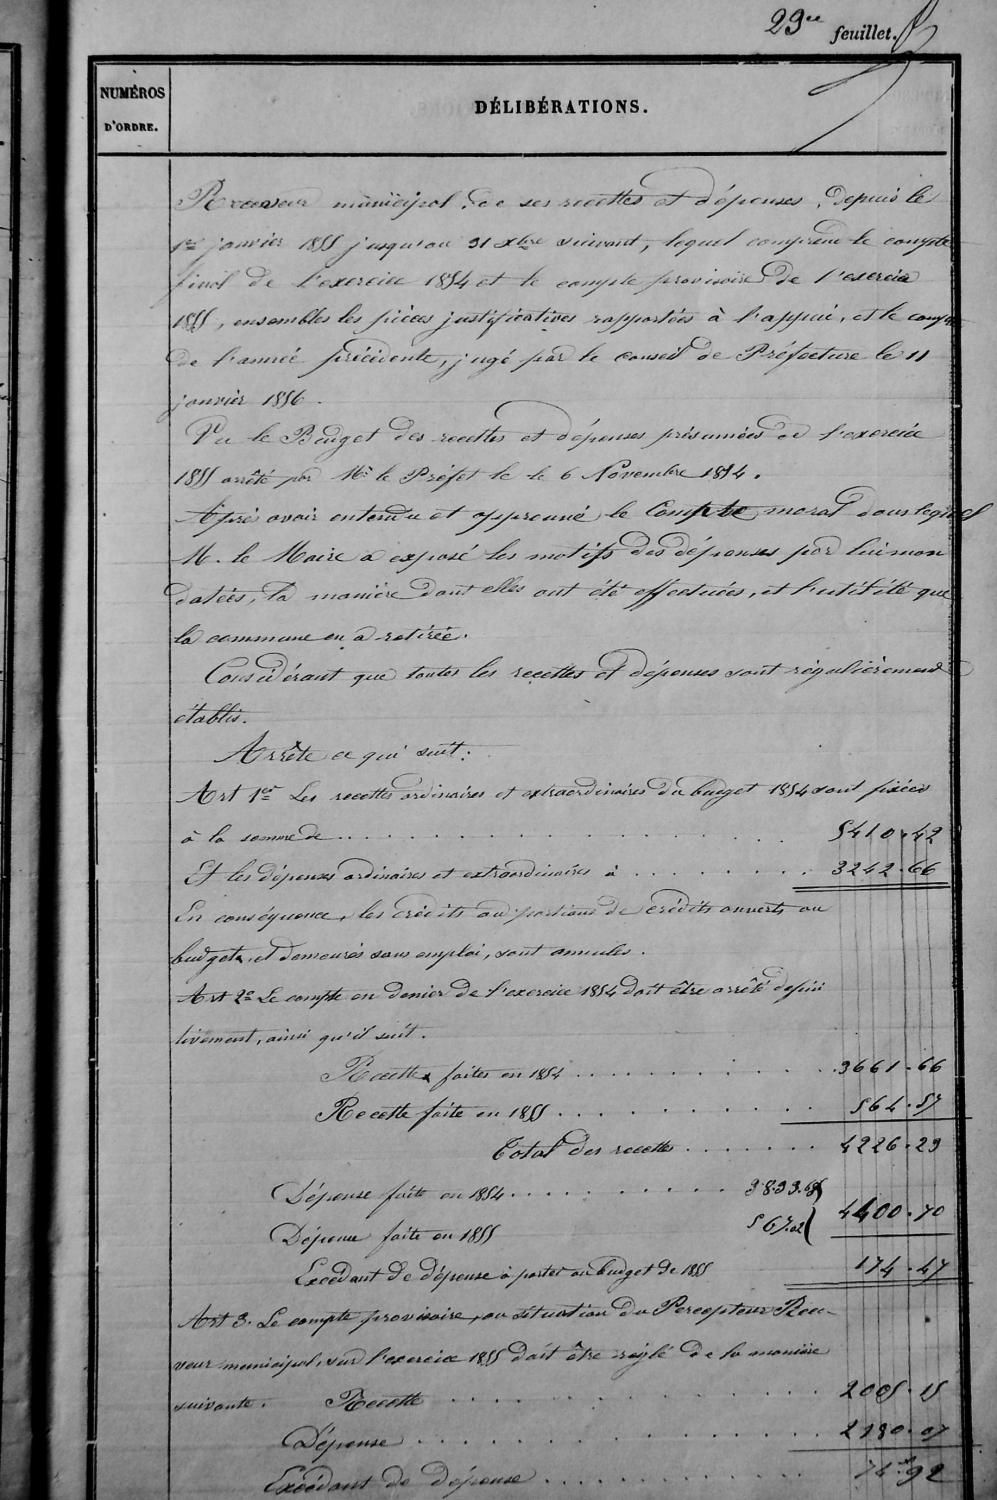 29ee feuillet.
NUMÉROS
D'ORDRE.
DÉLIBÉRATIONS.
Receveur municipal, de ses recettes et dépenses, depuis le
1er janvier 1855 jusqu'au 31 Xbre suivant, lequel comprend le compte
final de l'exercice 1854 et le compte provisoire de l'exercice
1855, ensembles les pièces justificatives rapportées à l'appui, et le compte
de l'année précédente, jugé par le conseil de Préfecture le 11
janvier 1856.
Vu le Budget des recettes et dépenses présumées de l'exercice
1855 arrêté par Mr le Préfet le le 6 Novembre 1854.
Après avoir entendu et approuvé le Compte moral dans lequel
M. le Maire a exposé les motifs des dépenses par lui man
datées, la manière dont elles ont été effectuées, et l'utilité que
la commune en a retirée.
Considérant que toutes les recettes et dépenses sont régulièrement
établis.
Arrête ce qui suit:
Art 1er Les recettes ordinaires et extraordinaires du budget 1854 sont fixées
à la somme de . . . . . . . . . . 5410.42
Et les dépenses ordinaires et extraordinaires à . . . . . . . . 3242.66
En conséquence, les crédits ou portions de crédits ouverts au
budget, et demeurés sans emploi, sont annulés.
Art 2e Le compte en denier de l'exercice 1854 doit être arrêté défini
tivement, ainsi qu'il suit.
Recette faites en 1854 . . . . . . . . . . 3661.66
Recette faite en 1855 . . . . . . . . . . 564.57
Total des recettes . . . . . . . 4226.23
Dépense faite en 1854 . . . . . . . . . . 3833.68
Dépense faite en 1855 567.02 4400.70
Excédant de dépense à porter au budget de 1855 174.47
Art 3. Le compte provisoire, ou situation du Percepteur Rece-
veur municipal, sur l'exercice 1855 doit être réglé de la manière
suivante. Recette . . . . . . . . . . 2005.15
Dépense . . . . . . . . . . 2180.07
Excédant de dépense . . . . . . . . . .